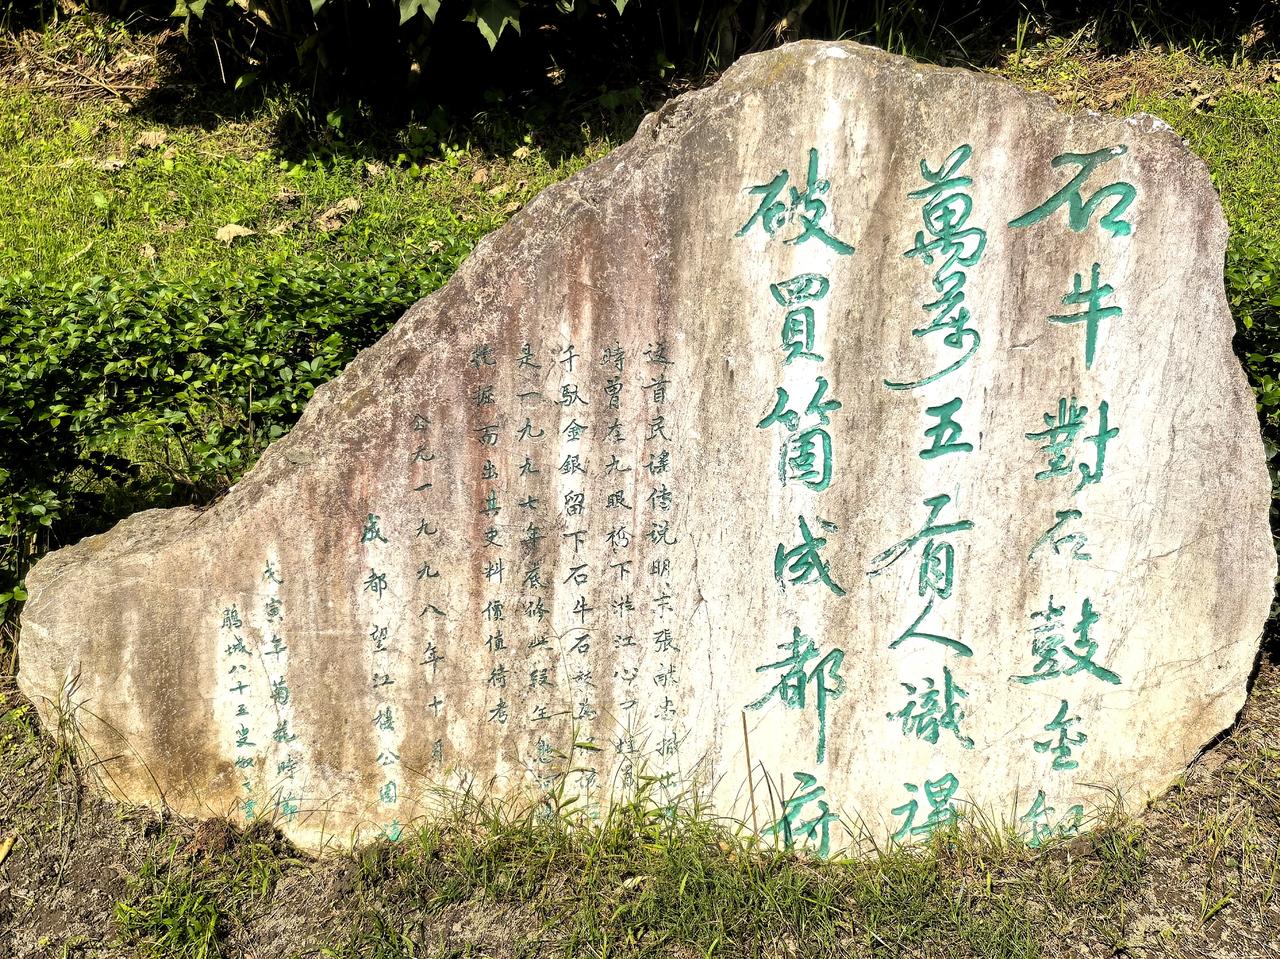 石牛對石鼓金銀
萬萬五有人識得
破買箇成都府
这首民謠傳说明末張献忠撤出
時曾在九眼桥下游江心
千馱金銀留下石牛石鼓為記
是一九九七年底修此段生態河
挖掘而出其史料價值待考
公元一九九八年十月
成都望江樓公園立
戊寅年菊花時節
鵬城八十五叟書